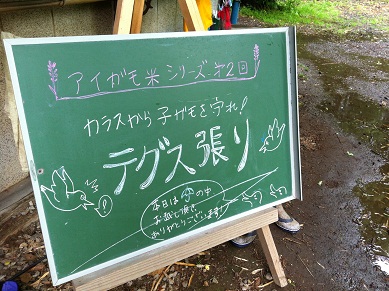 アイガモ米シリーズ・第2回
カラスから子ガモを守れ!
テグス張り
本日は☔の中
お越し頂き
ありがとうございます!